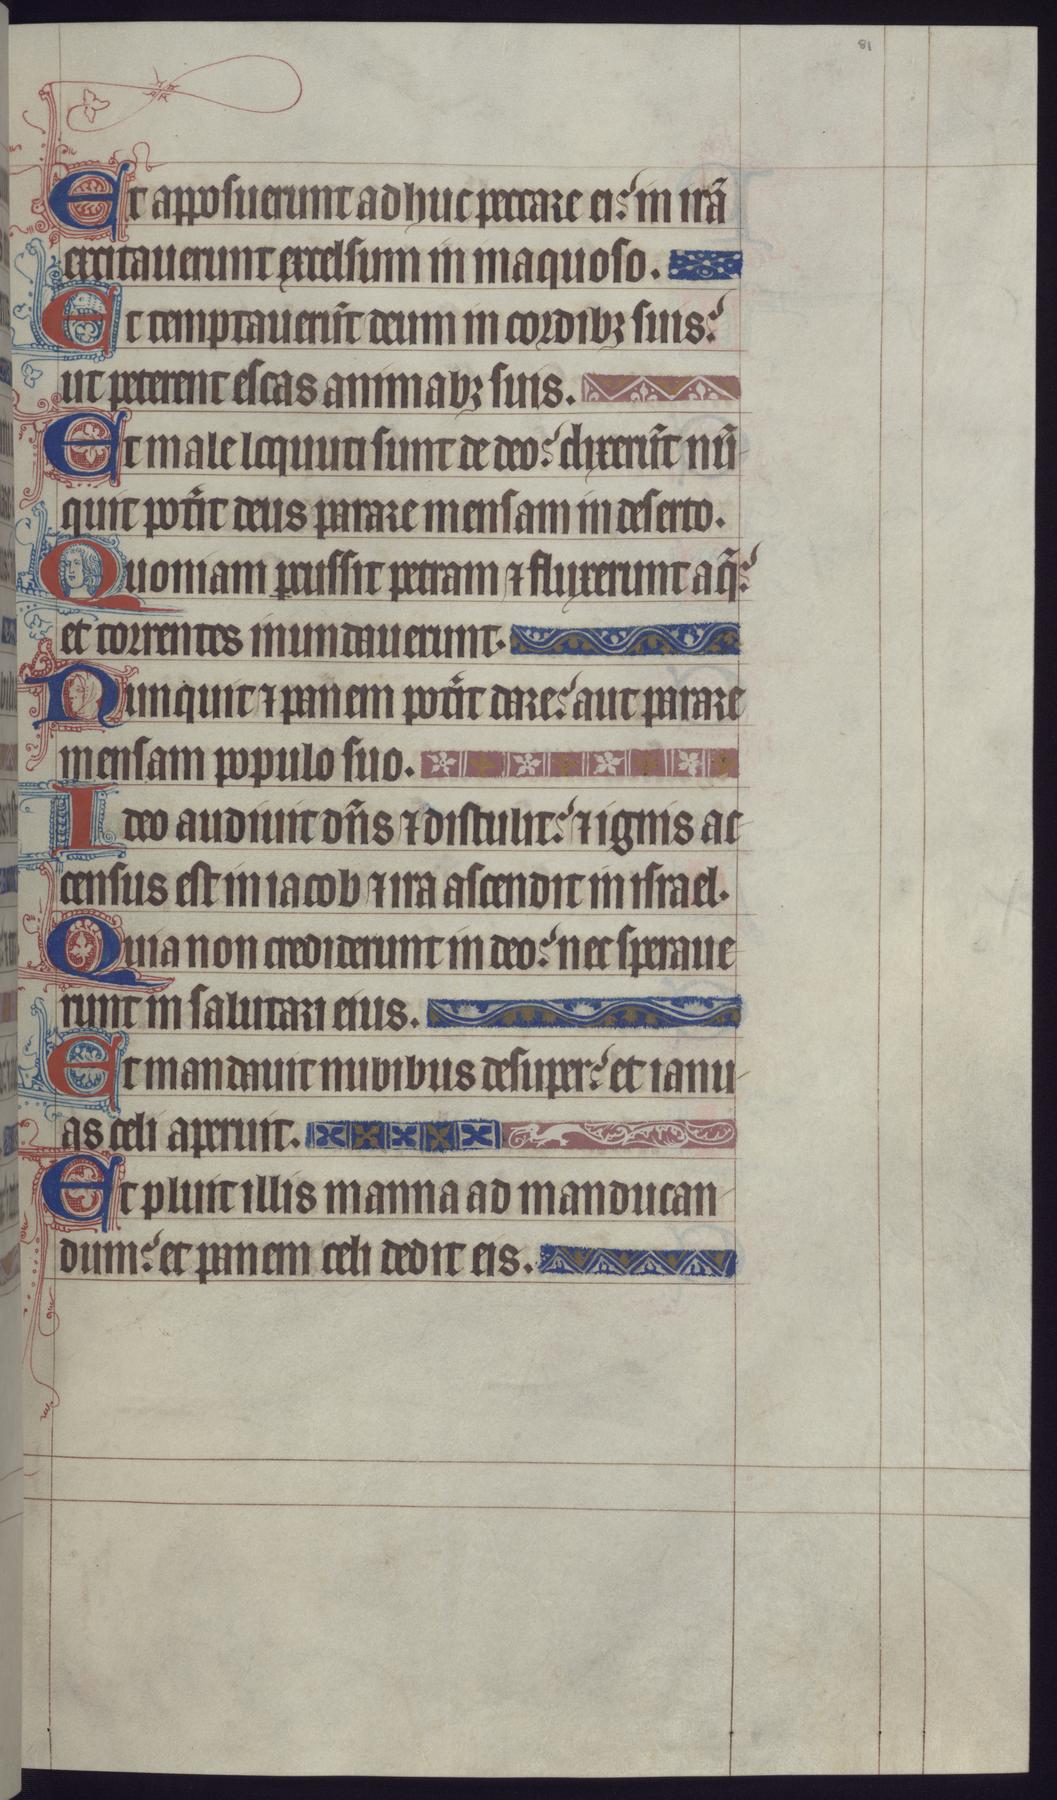 81
Et apposuerunt adhuc peccare ei: in irã
excitauerunt excelsum in inaquoso.
Et temptauerũt deum in cordibꝫ suis:
ut peterent escas animabꝫ suis.
Et male locuti sunt de deo: dixerũt nũ
quit potit deus parare mensam in deserto.
Quoniam pcussit petram ⁊ fluxerunt aq̃:
et torrentes inundauerunt.
Nunquit ⁊ panem potit dare: aut parare
mensam populo suo.
Ideo audiuit dñs ⁊ distulit: ⁊ ignis ac
census est in iacob ⁊ ira ascendit in israel.
Quia non crediderunt in deo: nec speraue
runt in salutari eius.
Et mandauit nubibus desuper: et ianu
as celi aperuit.
Et pluit illis manna ad manducan
dum: et panem celi dedit eis.